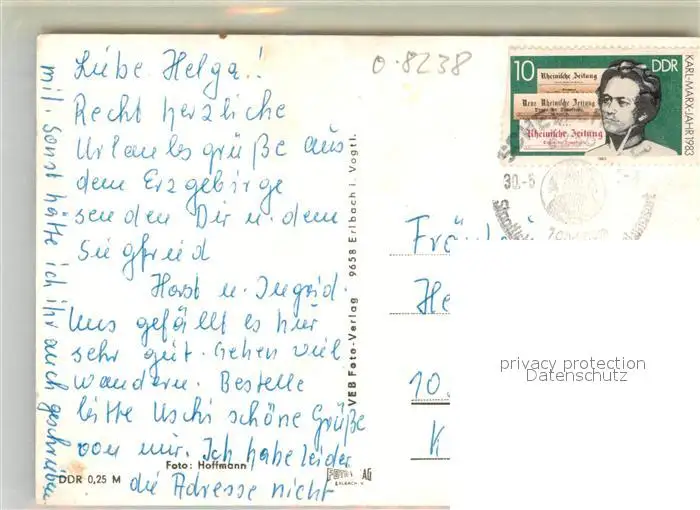 Liebe Helga!
Recht herzliche
Urlaubsgrüße aus
dem Erzgebirge
senden Dir u. dem
Siegfried
Horst u. Ingrid.
Uns gefällt es hier
sehr gut. Gehen viel
wandern. Bestelle
bitte Uschi schöne Grüße
von mir. Ich habe leider
die Adresse nicht
mit. Sonst hätte ich ihr auch geschrieben
Foto: Hoffmann
DDR 0,25 M
VEB Foto-Verlag 9658 Erlbach i. Vogtl.
0.8238
10 DDR
Rheinische Zeitung
Neue Rheinische Zeitung
Rheinische Zeitung
KARL-MARX-JAHR 1983
30.-6
He
10.
K
privacy protection
Datenschutz